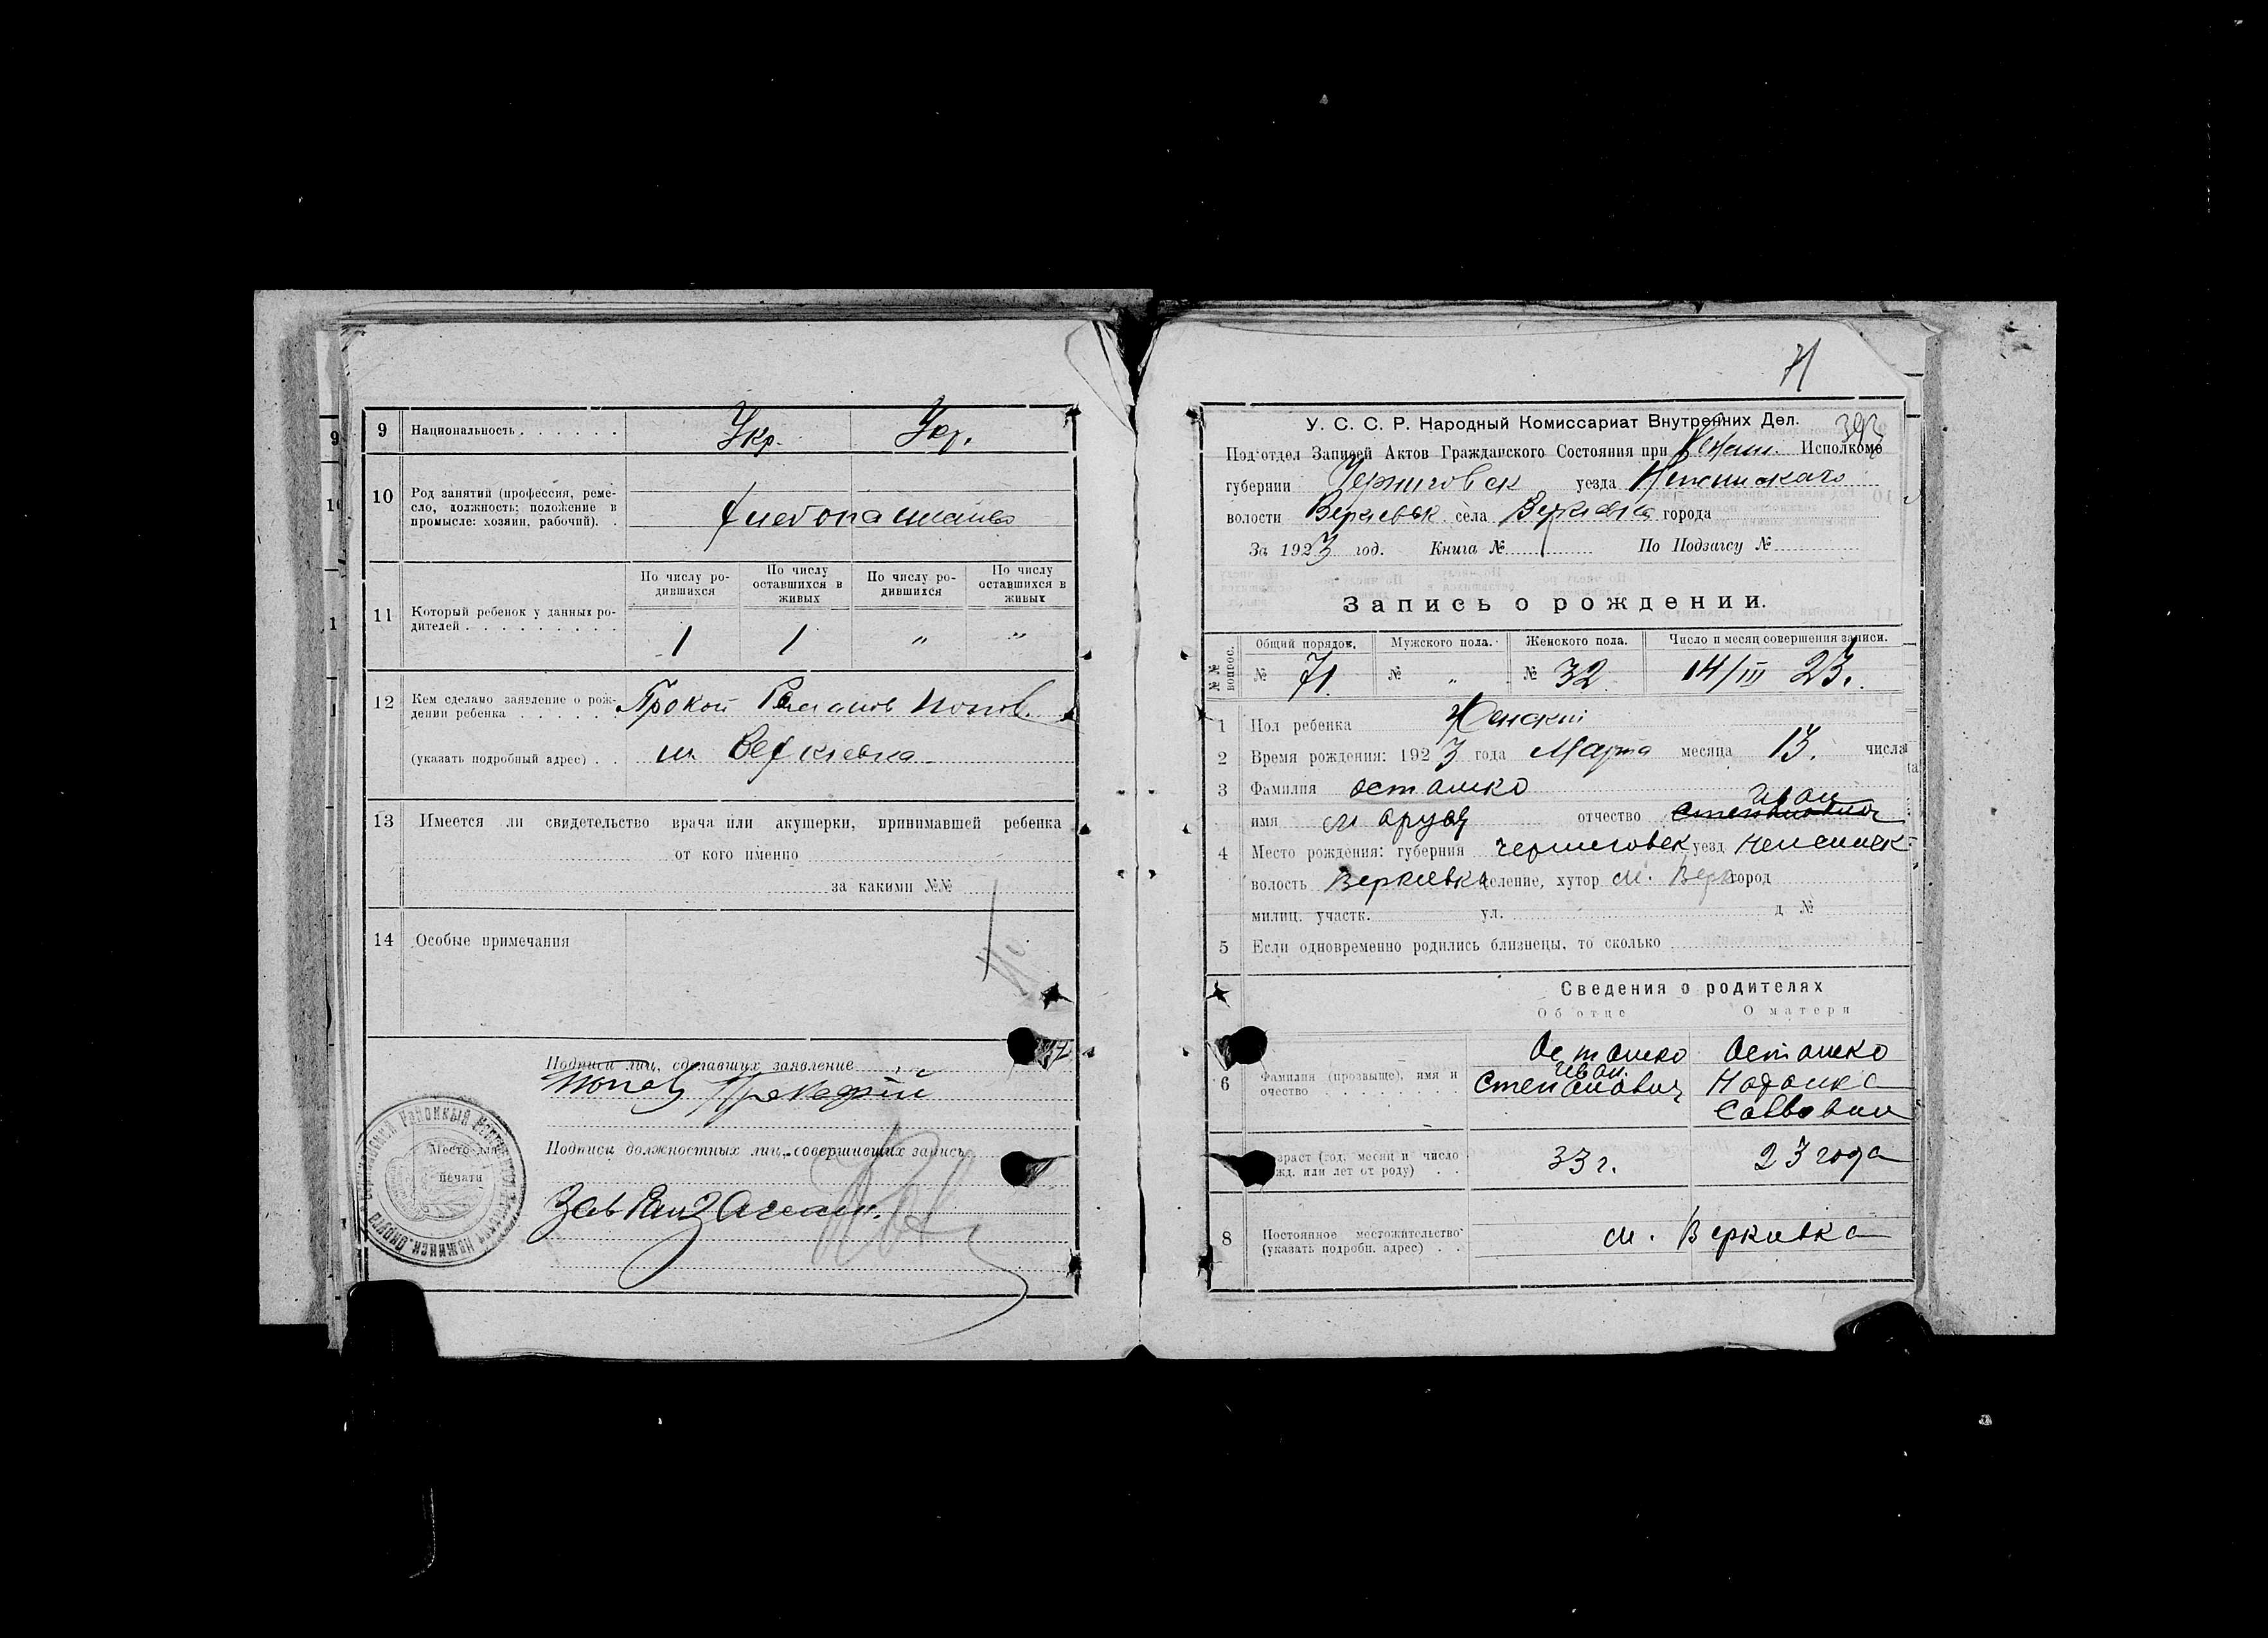 9 Национальность . . . . . . Укр. Укр.
10 Род занятий (профессия, реме-
сло, должность; положение в
промысле: хозяин, рабочий). .
хлебопашество
11 Который ребенок у данных ро-
дителей . . . . . . . . .
По числу ро-
дившихся
По числу
оставшихся в
живых
По числу ро-
дившихся
По числу
оставшихся в
живых
1 1 " "
12 Кем сделано заявление о рож-
дении ребенка . . . . . .
Прокоп Романов Попов.
(указать подробный адрес) . . м. Веркиевка
13 Имеется ли свидетельство врача или акушерки, принимавшей ребенка
от кого именно
за какими №№
14 Особые примечания
Подписи лиц, сделавших заявление
Попов
Место для
печати
Подписи должностных лиц, совершивших запись
71
У. С. С. Р. Народный Комиссариат Внутренних Дел.
Под‘отдел Записей Актов Гражданского Состояния при Нежин. Исполкоме
губернии Черниговск уезда Нежинскаго
волости Веркиевск села Веркиевка города
За 1923 год. Книга № По Подзагсу №
Запись о рождении.
№№ вопрос.
Общий порядок. Мужского пола. Женского пола. Число и месяц совершения записи.
№ 71. № " № 32 14/III 23.
1 Пол ребенка Женский
2 Время рождения: 1923 года Марта месяца 13. числа
3 Фамилия Осташко
Иван
имя Маруся отчество Степановна
4 Место рождения: губерния Черниговск уезд Неженск
волость Веркиевка селение, хутор м. Верк город
милиц. участк. ул. д №
5 Если одновременно родились близнецы, то сколько
Сведения о родителях
Об отце О матери
6 Фамилия (прозвище), имя и
отчество . . . . . . . .
Осташко
Иван
Степанович
Осташко
Савовна
возраст (год, месяц и число
рожд. или лет от роду) . .
33 г. 23 года
8 Постоянное местожительство
(указать подробн. адрес) . .
м. Веркиевка